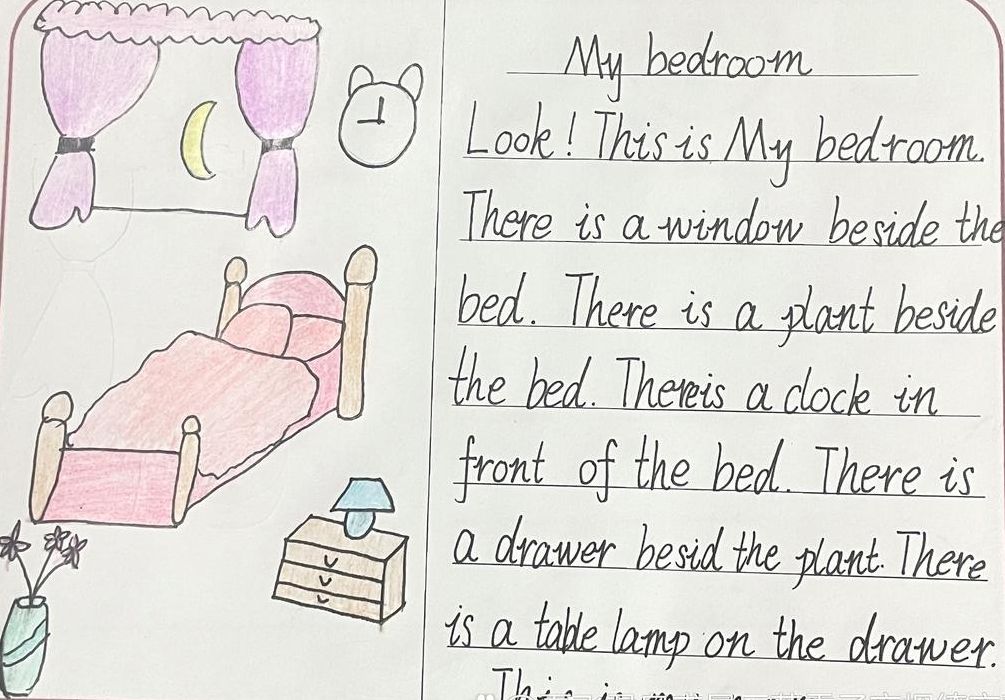 My bedroom
Look! This is My bedroom.
There is a window beside the
bed. There is a plant beside
the bed. There is a clock in
front of the bed. There is
a drawer besid the plant. There
is a table lamp on the drawer.
This is